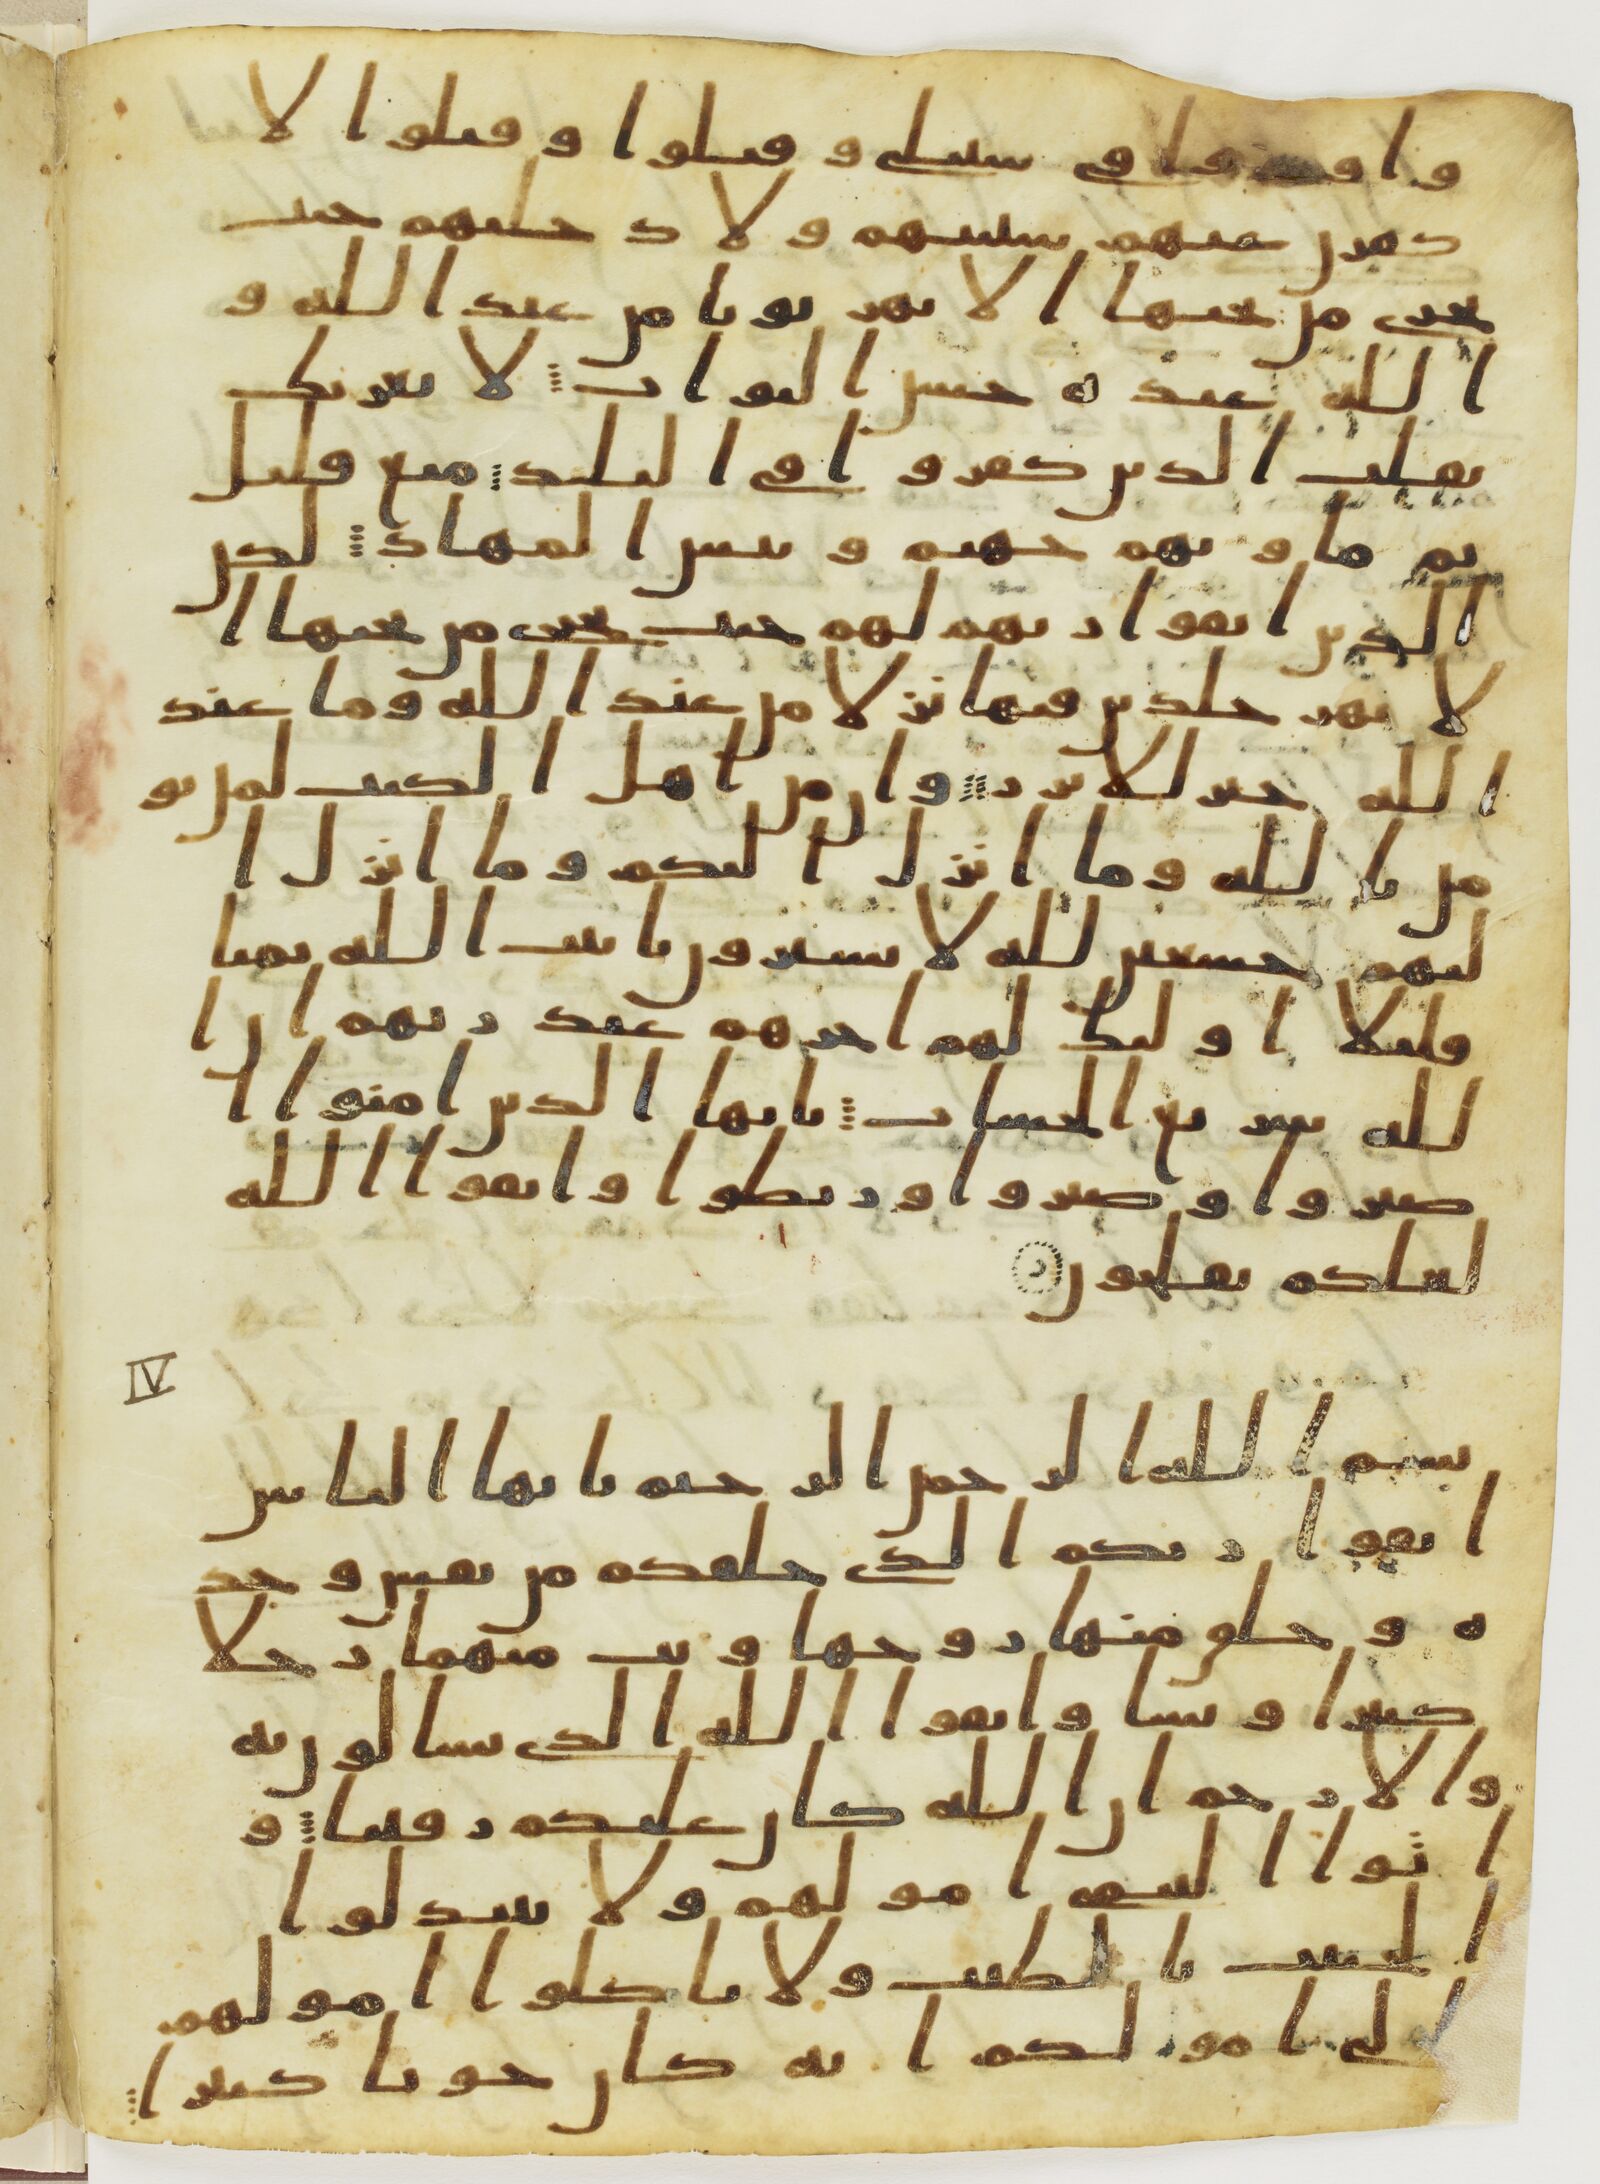 واوذوا في سبيلي وقتلوا وقتلوا لا
كفرن عنهم سيتهم ولادخلنهم جنت
تجري من تحتها الانهر ثوبا من عند الله و
الله عنده حسن الثواب لا يغرنك
تقلب الذين كفروا في البلد متع قليل
ثم ماويهم جهنم وبيس المهاد لكن
الذين اتقوا ربهم لهم جنت تجري من تحتها ا
لانهر خلدين فيها نزلا من عند الله وما عند
الله خير للابرر وان من اهل الكتب لمن يو
من بالله وما انزل اليكم وما انزل ا
ليهم خشعين لله لا يشترون بايت الله ثمنا
قليلا اوليك لهم اجرهم عند ربهم ان ا
لله سريع الحساب يايها الذين امنوا ا
صبروا وصبروا وربطوا واتقوا الله
لعلكم تفلحون
IV
بسم الله الرحمن الرحيم يايها الناس
اتقوا ربكم الذي خلقكم من نفس وحد
ه وخلق منها زوجها وبث منهما رجلا
كثيرا ونسا واتقوا الله الذي تسالون به
والارحم ان الله كان عليكم رقيبا و
اتوا اليتمى امولهم ولا تتبدلوا
الخبيث بالطيب ولا تاكلوا امولهم
الى امولكم انه كان حوبا كبيرا